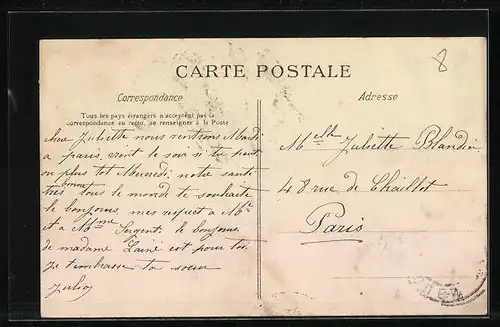 8
CARTE POSTALE
Correspondance
Adresse
Tous les pays étrangers n'acceptent pas la
correspondance au recto, se renseigner à la Poste
Chere Juliette nous rentrons Mardi
a paris vient le soir si tu peut
ou plus tot Mercredi notre santé
bonne
tres tous le monde te souhaite
le bonjours mes respect a Mr
et a Mme Sergent le bonjours
de madame Lainé est pour toi
Je t'embrasse ta soeur
Melle Juliette Blandin
48 rue de Chaillot
Paris